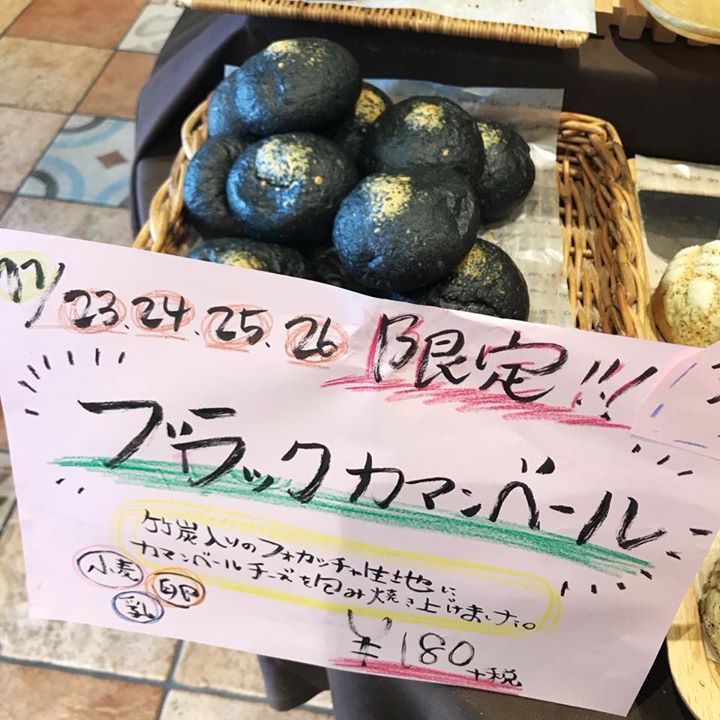 11/23.24.25.26 日限定!!!
ブラックカマンベール
竹炭入りのフォカッチャ生地に、
カマンベールチーズを包み焼き上げました。
小麦 卵
乳
¥180+税